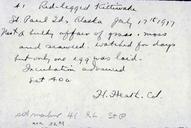 41 Red-legged Kittiwake
St. Paul Id, Alaska July 17th 1917
Nest a bulky affair of grass, moss
and seaweed. Watched for days
but only one egg was laid.
Incubation advanced
Set 40a
H. Heath. Col.
set mark 41